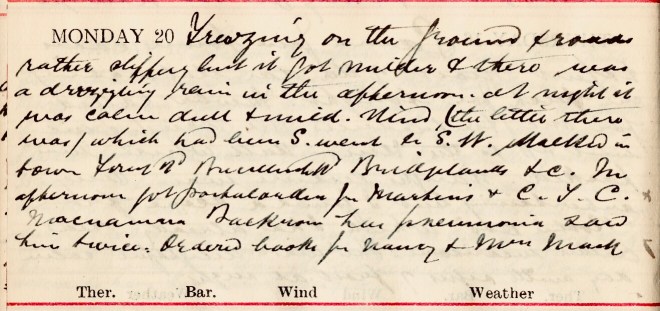 MONDAY 20 Freezing on the ground & roads
rather slippery but it got milder & there was
a drizzling rain in the afternoon. At night it
was calm dull & mild. Wind (the little there
was) which had been S. went to S.W. Walked in
town Bridglands &c. In
afternoon got for Martins & C. Y. C.
Macnamara Jackson has pneumonia saw
him twice. Ordered books for Nancy & Mrs Mack
Ther. Bar. Wind Weather